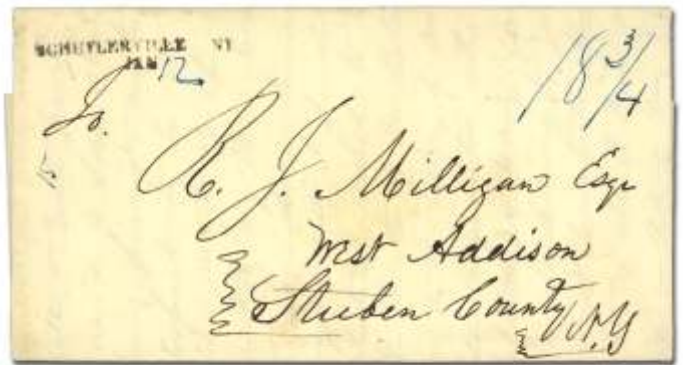 SCHUYLERVILLE NY
JAN 12
18 3/4
To.
R. J. Milligan Esqr
West Addison
Steuben County
N.Y